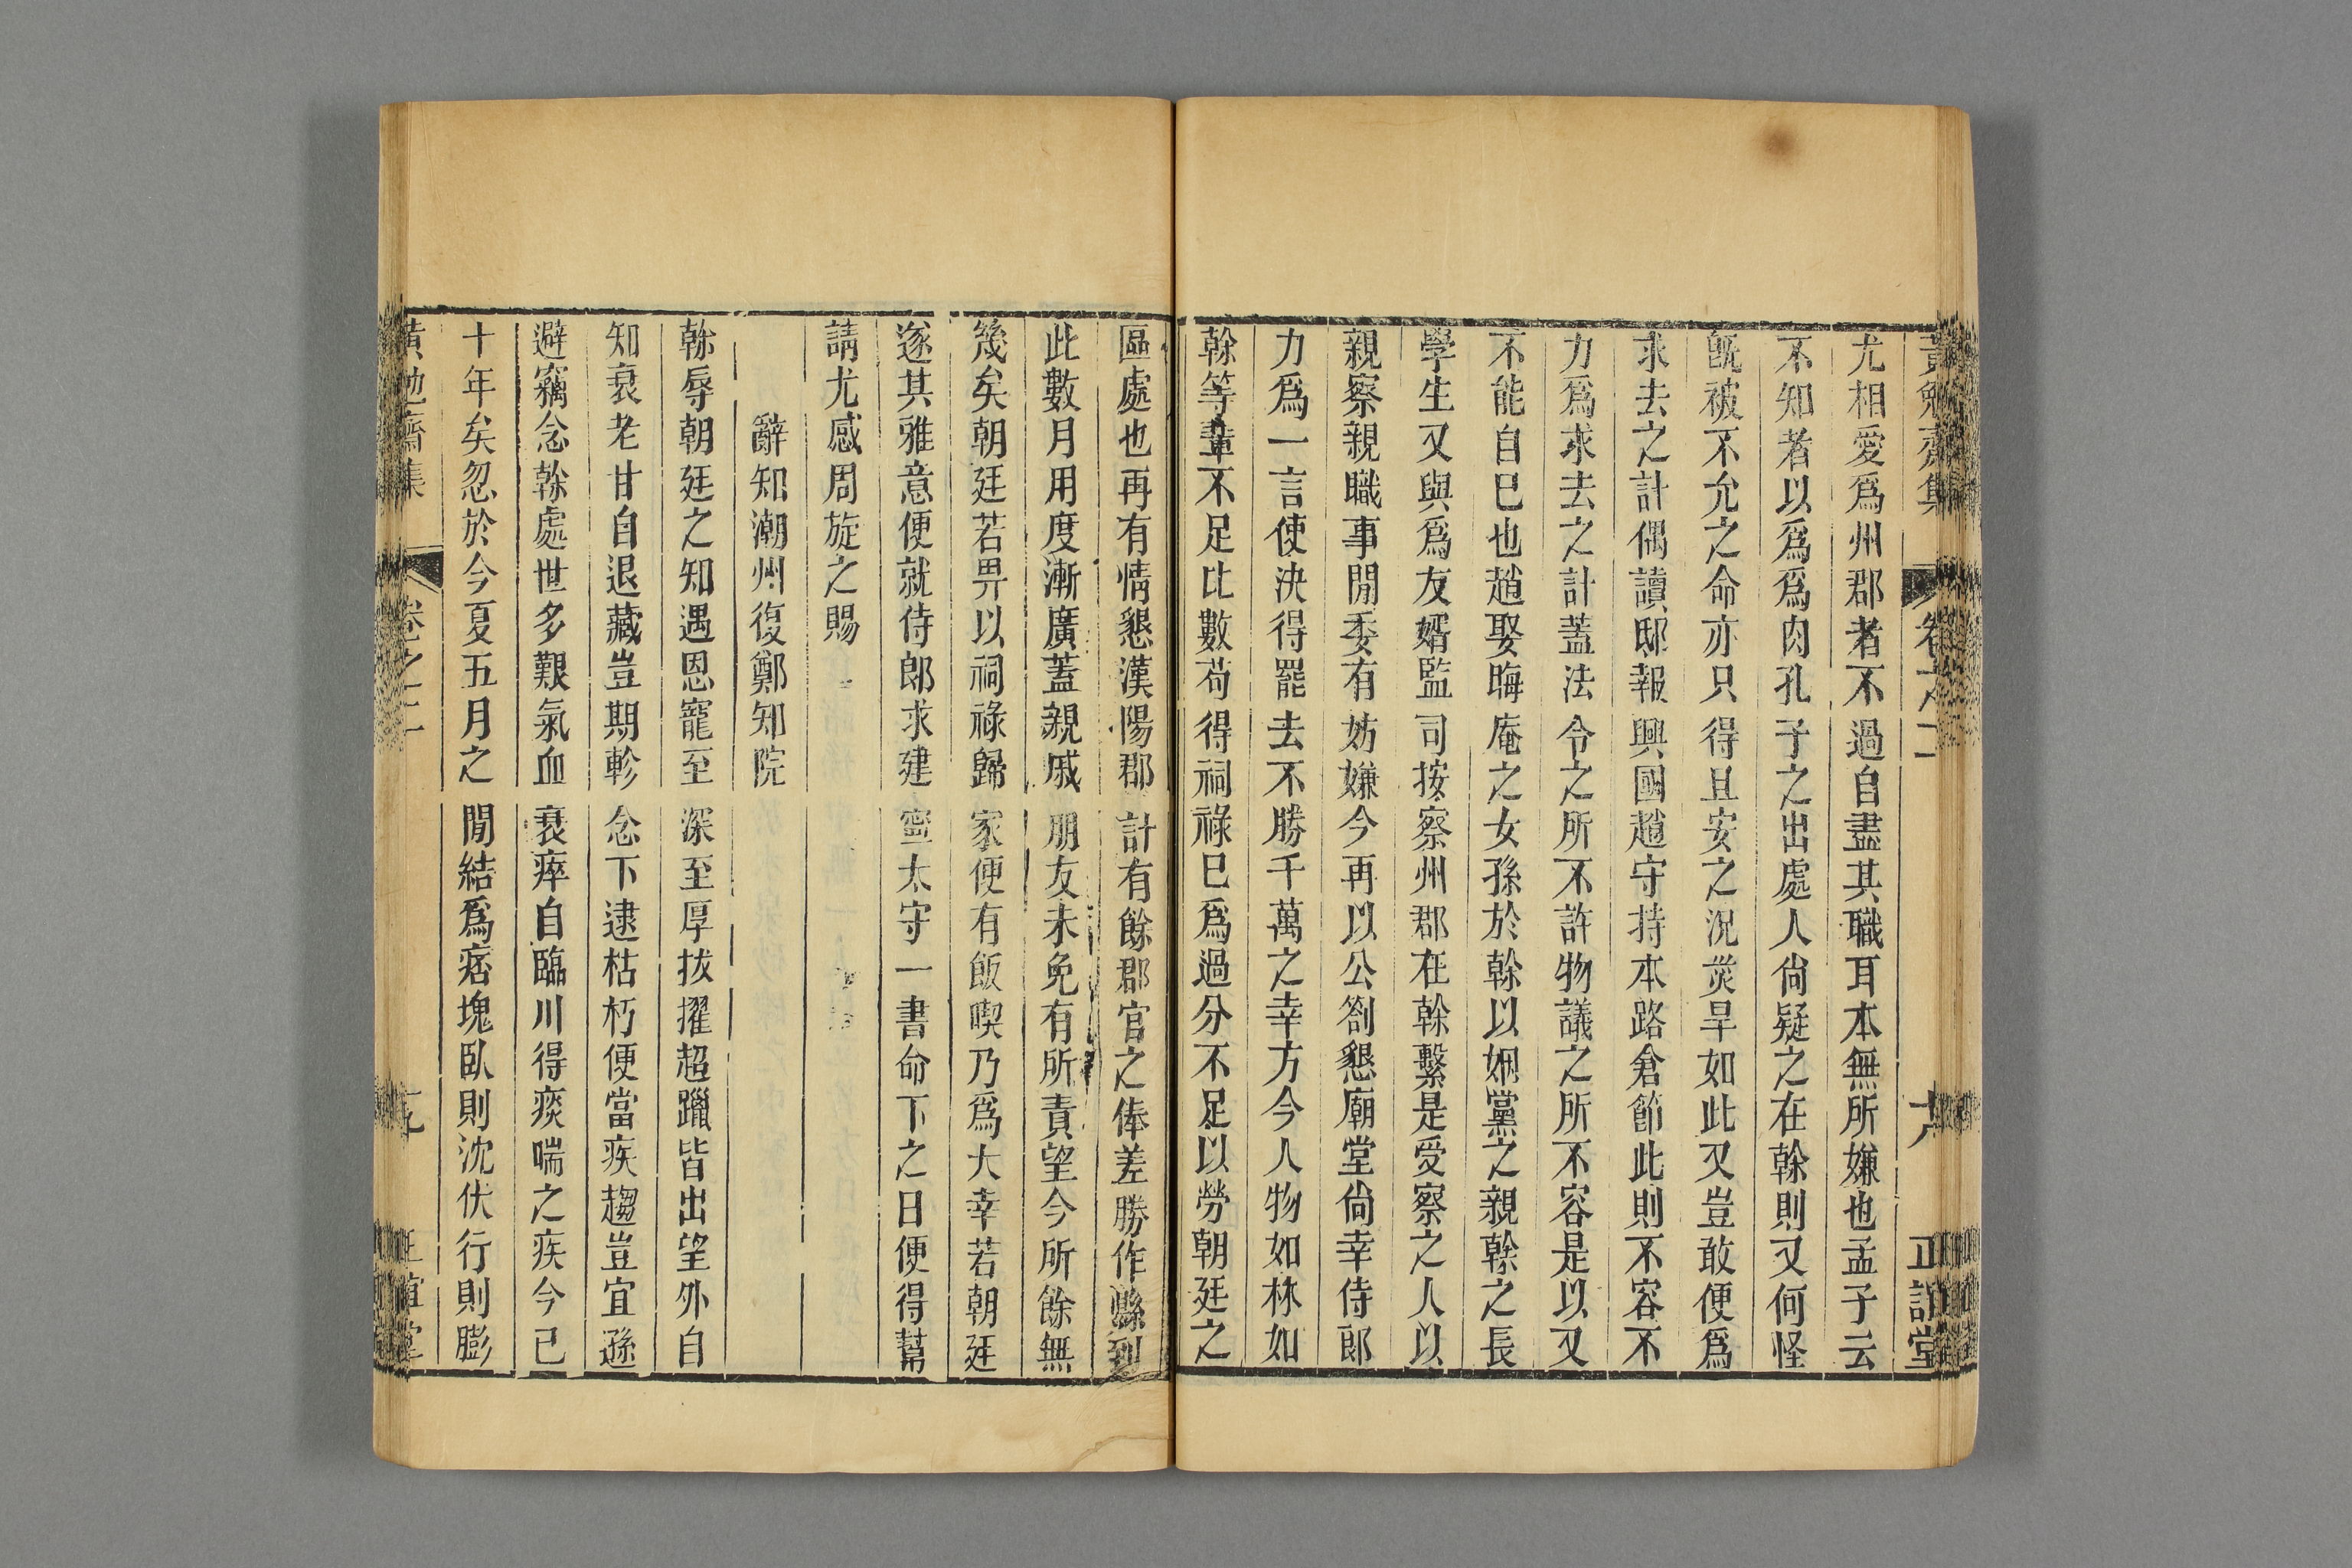 黃勉齋集 卷之二 十八 正誼堂
尤相愛爲州郡者不過自盡其職耳本無所嫌也孟子云
不知者以爲爲肉孔子之出處人尙疑之在榦則又何怪
旣被不允之命亦只得且安之況災旱如此又豈敢便爲
求去之計偶讀邸報興國趙守持本路倉節此則不容不
力爲求去之計葢法令之所不許物議之所不容是以又
不能自巳也趙娶晦庵之女孫於榦以姻黨之親榦之長
學生又與爲友婿監司按察州郡在榦繫是受察之人以
親察親職事閒委有妨嫌今再以公劄懇廟堂尙幸侍郞
力爲一言使決得罷去不勝千萬之幸方今人物如林如
榦等輩不足比數苟得祠祿巳爲過分不足以勞朝廷之
區處也再有情懇漢陽郡計有餘郡官之俸差勝作縣到
此數月用度漸廣蓋親戚朋友未免有所責望今所餘無
幾矣朝廷若畀以祠祿歸家便有飯喫乃爲大幸若朝廷
遂其雅意便就侍郞求建寧太守一書命下之日便得幫
請尤感周旋之賜
辭知潮州復鄭知院
榦辱朝廷之知遇恩寵至深至厚拔擢超躐皆出望外自
知衰老甘自退藏豈期軫念下逮枯朽便當疾趨豈宜遜
避竊念榦處世多艱氣血衰瘁自臨川得痰喘之疾今已
十年矣忽於今夏五月之閒結爲痞塊臥則沈伏行則膨
黃勉齋集 卷之二 十九 正誼堂